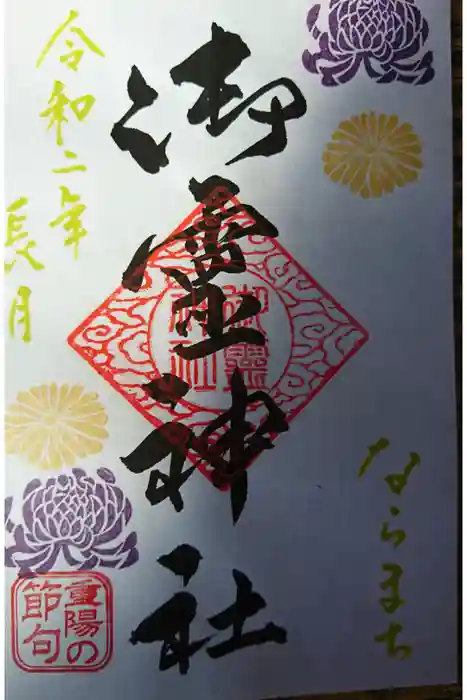 ならまち
御霊神社
御霊神社
令和二年
長月
重陽の
節句